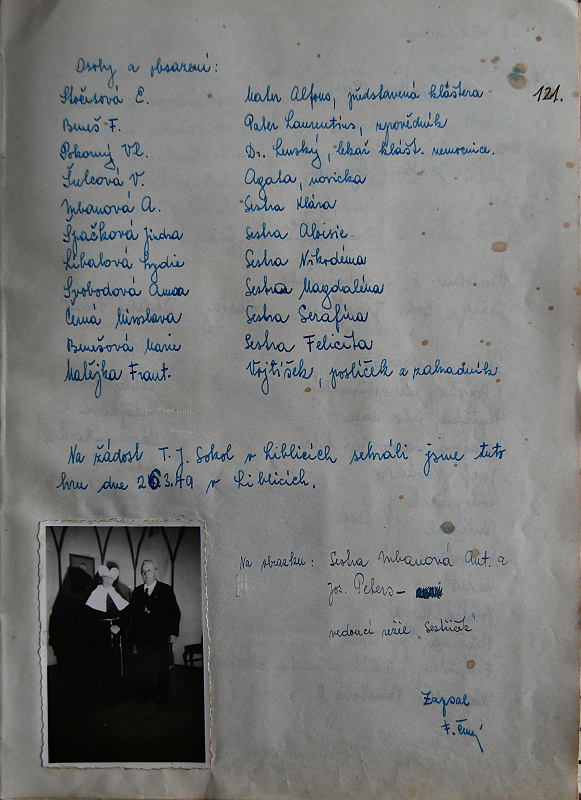 Osoby a obsazení:
121.
Stočesová E. Mater Alfons, představená kláštera
Beneš F. Pater Laurentius, zpovědník
Pokorný Vl. Dr. Lenský, lékař klášt. nemocnice.
Šulcová V. Agata, novicka
Urbanová A. Sestra Klára
Špačková Jindra Sestra Aloisie
Libalová Lydie Sestra Nikodéma
Svobodová Anna Sestra Magdaléna
Černá Miroslava Sestra Serafína
Benešová Marie Sestra Felicita
Matějka Frant. Vojtíšek, poslíček a zahradník
Na žádost T. J. Sokol v Liblicích sehráli jsme tuto
hru dne 26.3.49 v Liblicích.
Na obrázku: Sestra Urbanová Ant. a
Jos. Peters –
vedoucí režie "Sestřiček"
Zapsal
F. Černý